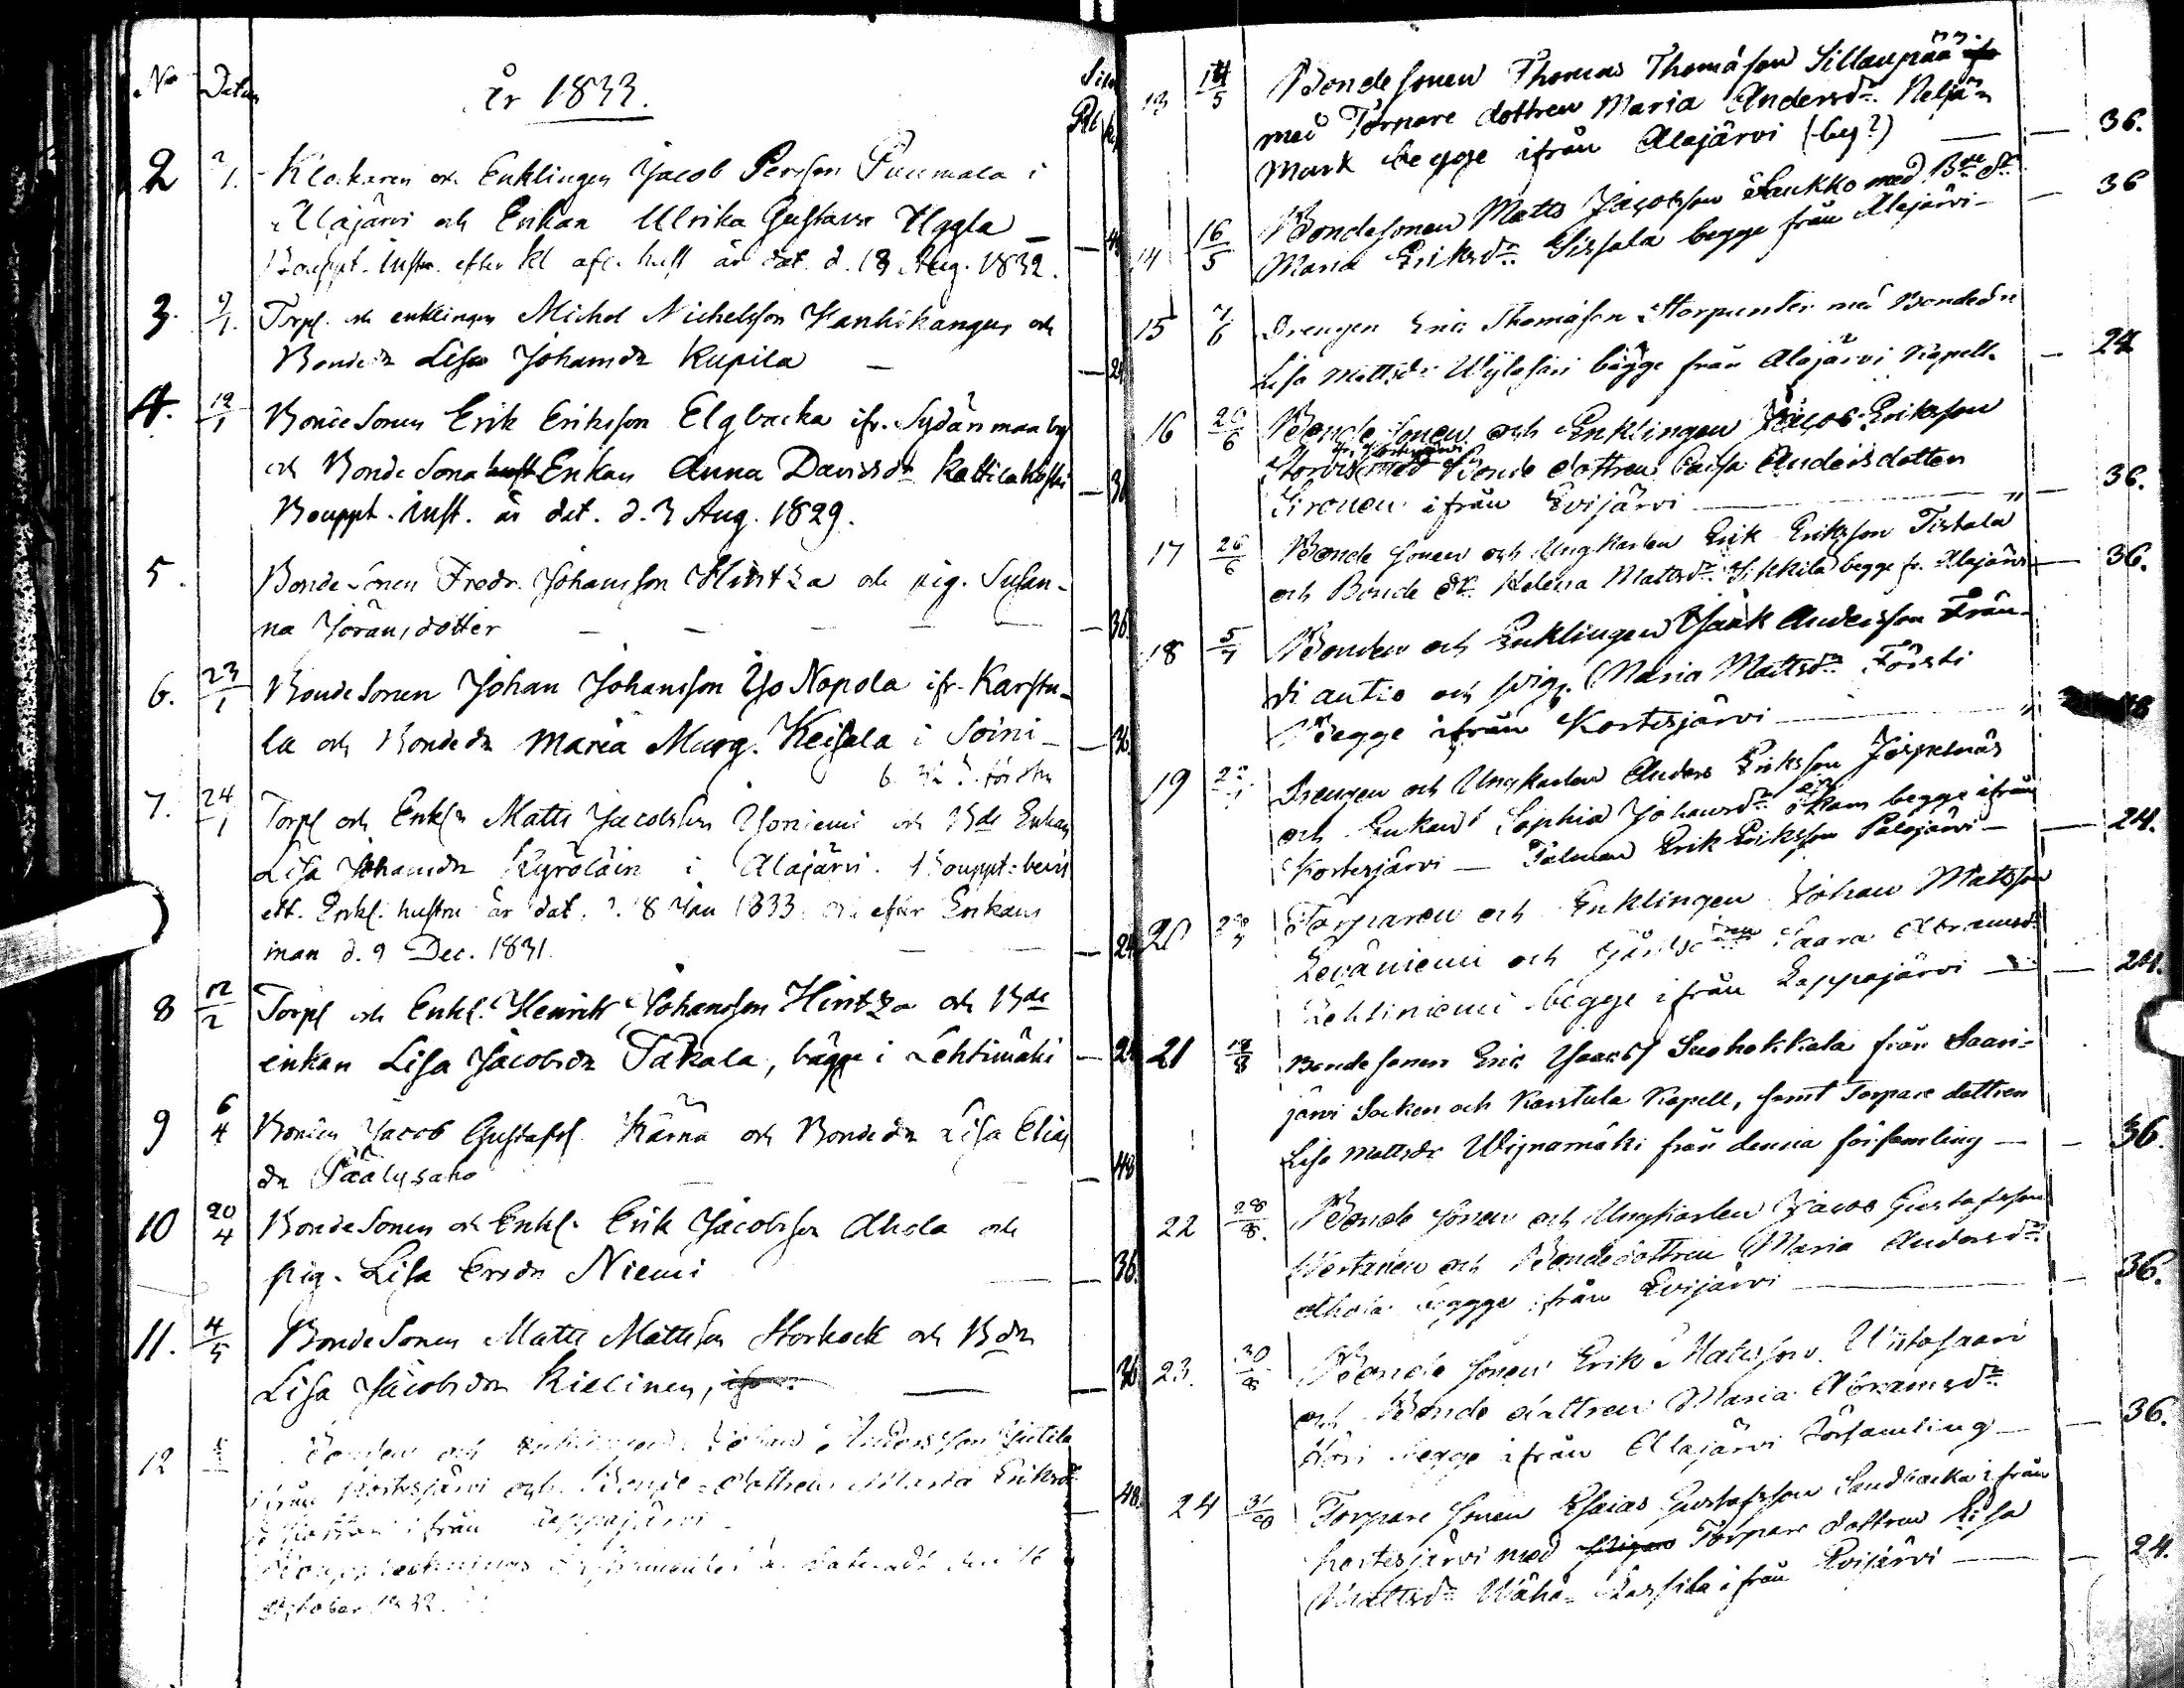 No Datum År 1833. Silf
Rbl k
2 2/1. Klockaren och Enklingen Jacob Persson Puumala i
Alajärvi och Enkan Ulrika Gustava Uggla — 48
Bouppt. Instr. efter Kl afl. hust är dat. d. 18 Aug. 1832.
3. 9/1. Torp. och enklingen Michel Michelsson Kanhikangas och
Bonde dr Lisa Johansdr Kupila — 24
4. 12/1 BondeSonen Erik Eriksson Elgbacka ifr. Sydänmaa by
och BondeSona Enkan Anna Davidsdr Kattilakoski — 36
Bouppt. Inst. är dat. d. 3 Aug. 1829.
5. BondeSonen Fredr. Johansson Hintza och pig. Susan-
na Jöransdotter — — — — 36
6. 23/1 BondeSonen Johan Johansson Iso Nopola ifr. Karstu-
la och Bondedr Maria Marg. Keisala i Soini — 36
7. 24/1 Torp och Enkl Matts Jacobsson Yoniemi och Bde Enkan
Lisa Johansdr Kyröläin i Alajärvi. Bouppt: bevis
eft. Enkl. hustru är dat. d. 8 Jan 1833 och efter Enkans
man d. 9 Dec. 1831. — — 24
8 12/2 Torp och Enkl. Henrik Johansson Hintza och Bde
enkan Lisa Jacobsdr Takala, bägge i Lehtimäki — 24
9 6/4 Bonden Jacob Gustafss. Kärnä och Bondedr Lisa Elias
dr Päälysaho — — 48
10 20/4 BondeSonen och Enkl. Erik Jacobsson Ahola och
pig. Lisa Ersdr Niemi — 36.
11. 4/5 BondeSonen Matts Mattsson Storkock och Bdr
Lisa Jacobsdr Kielinen, — 36
12 Bonden och enklingen Johan Andersson
ifrån Kortesjärvi och Bonde-dottren Maria Eriksdr — 48.
ifrån Lappajärvi
Boupptecknings Instrumentet är dateradt den 16
October 1832.
13 14/5 Bondesonen Thomas Thomasson Sillanpää
med Torpare dottren Maria Andersdr Neljän
mark begge ifrån Alajärvi (by?) — 36.
14 16/5 Bondesonen Matts Jacobsson Saukko med Bde dr
Maria Eriksdr Sissala begge från Alajärvi — 36
15 7/6 Drengen Eric Thomasson Storpunter med Bondedr
Lisa Mattsdr bägge från Alajärvi Kapell. — 24
16 20/6 Bonde Sonen och Enklingen Jacob Eriksson
Storvis med Bonde dottren Caisa Andersdotter
Sironen ifrån Evijärvi — 36.
17 26/6 Bonde Sonen och Ungkarlen Erik Eriksson Tistala
och Bonde dr. Helena Mattsdr Sikkilä begge fr. Alajärvi — 36.
18 5/7 Bonden och Enklingen Isaak Andersson Frän-
di antio och pig. Maria Mattsdr Försti
Begge ifrån Kortesjärvi — 48
19 Drengen och Ungkarlen Anders Eriksson Jöspelnäs
och Enkan Sophia Johansdr begge ifrån
Kortesjärvi — Talman Erik Eriksson Palojärvi — 24.
20 Torparen och Enklingen Johan Mattsson
Leväniemi och Saara Abramsdr
Lehtiniemi begge ifrån Lappajärvi — 24.
21 18/8 Bonde sonen Eric Isacss Suohokkala från Saari-
järvi Socken och Karstula Kapell, samt Torpare dottren
Lisa Mattsdr Wijnamäki från denna församling — 36.
22 28/8. Bonde Sonen och Ungkarlen Jacob Gustafsson
Wertanen och Bondedottren Maria Andersdr
Ahola begge ifrån Evijärvi — 36.
23. 30/8 Bonde Sonen Erik Matsson Uistosaari
och Bonde dottren Maria Abramsdr
begge ifrån Alajärvi Församling — 36.
24 31/8 Torpare Sonen Esaias Gustafsson Sandbacka ifrån
Kortesjärvi med Torpare dottren Lisa
Mattsdr Wähä-Passila ifrån Evijärvi — 24.